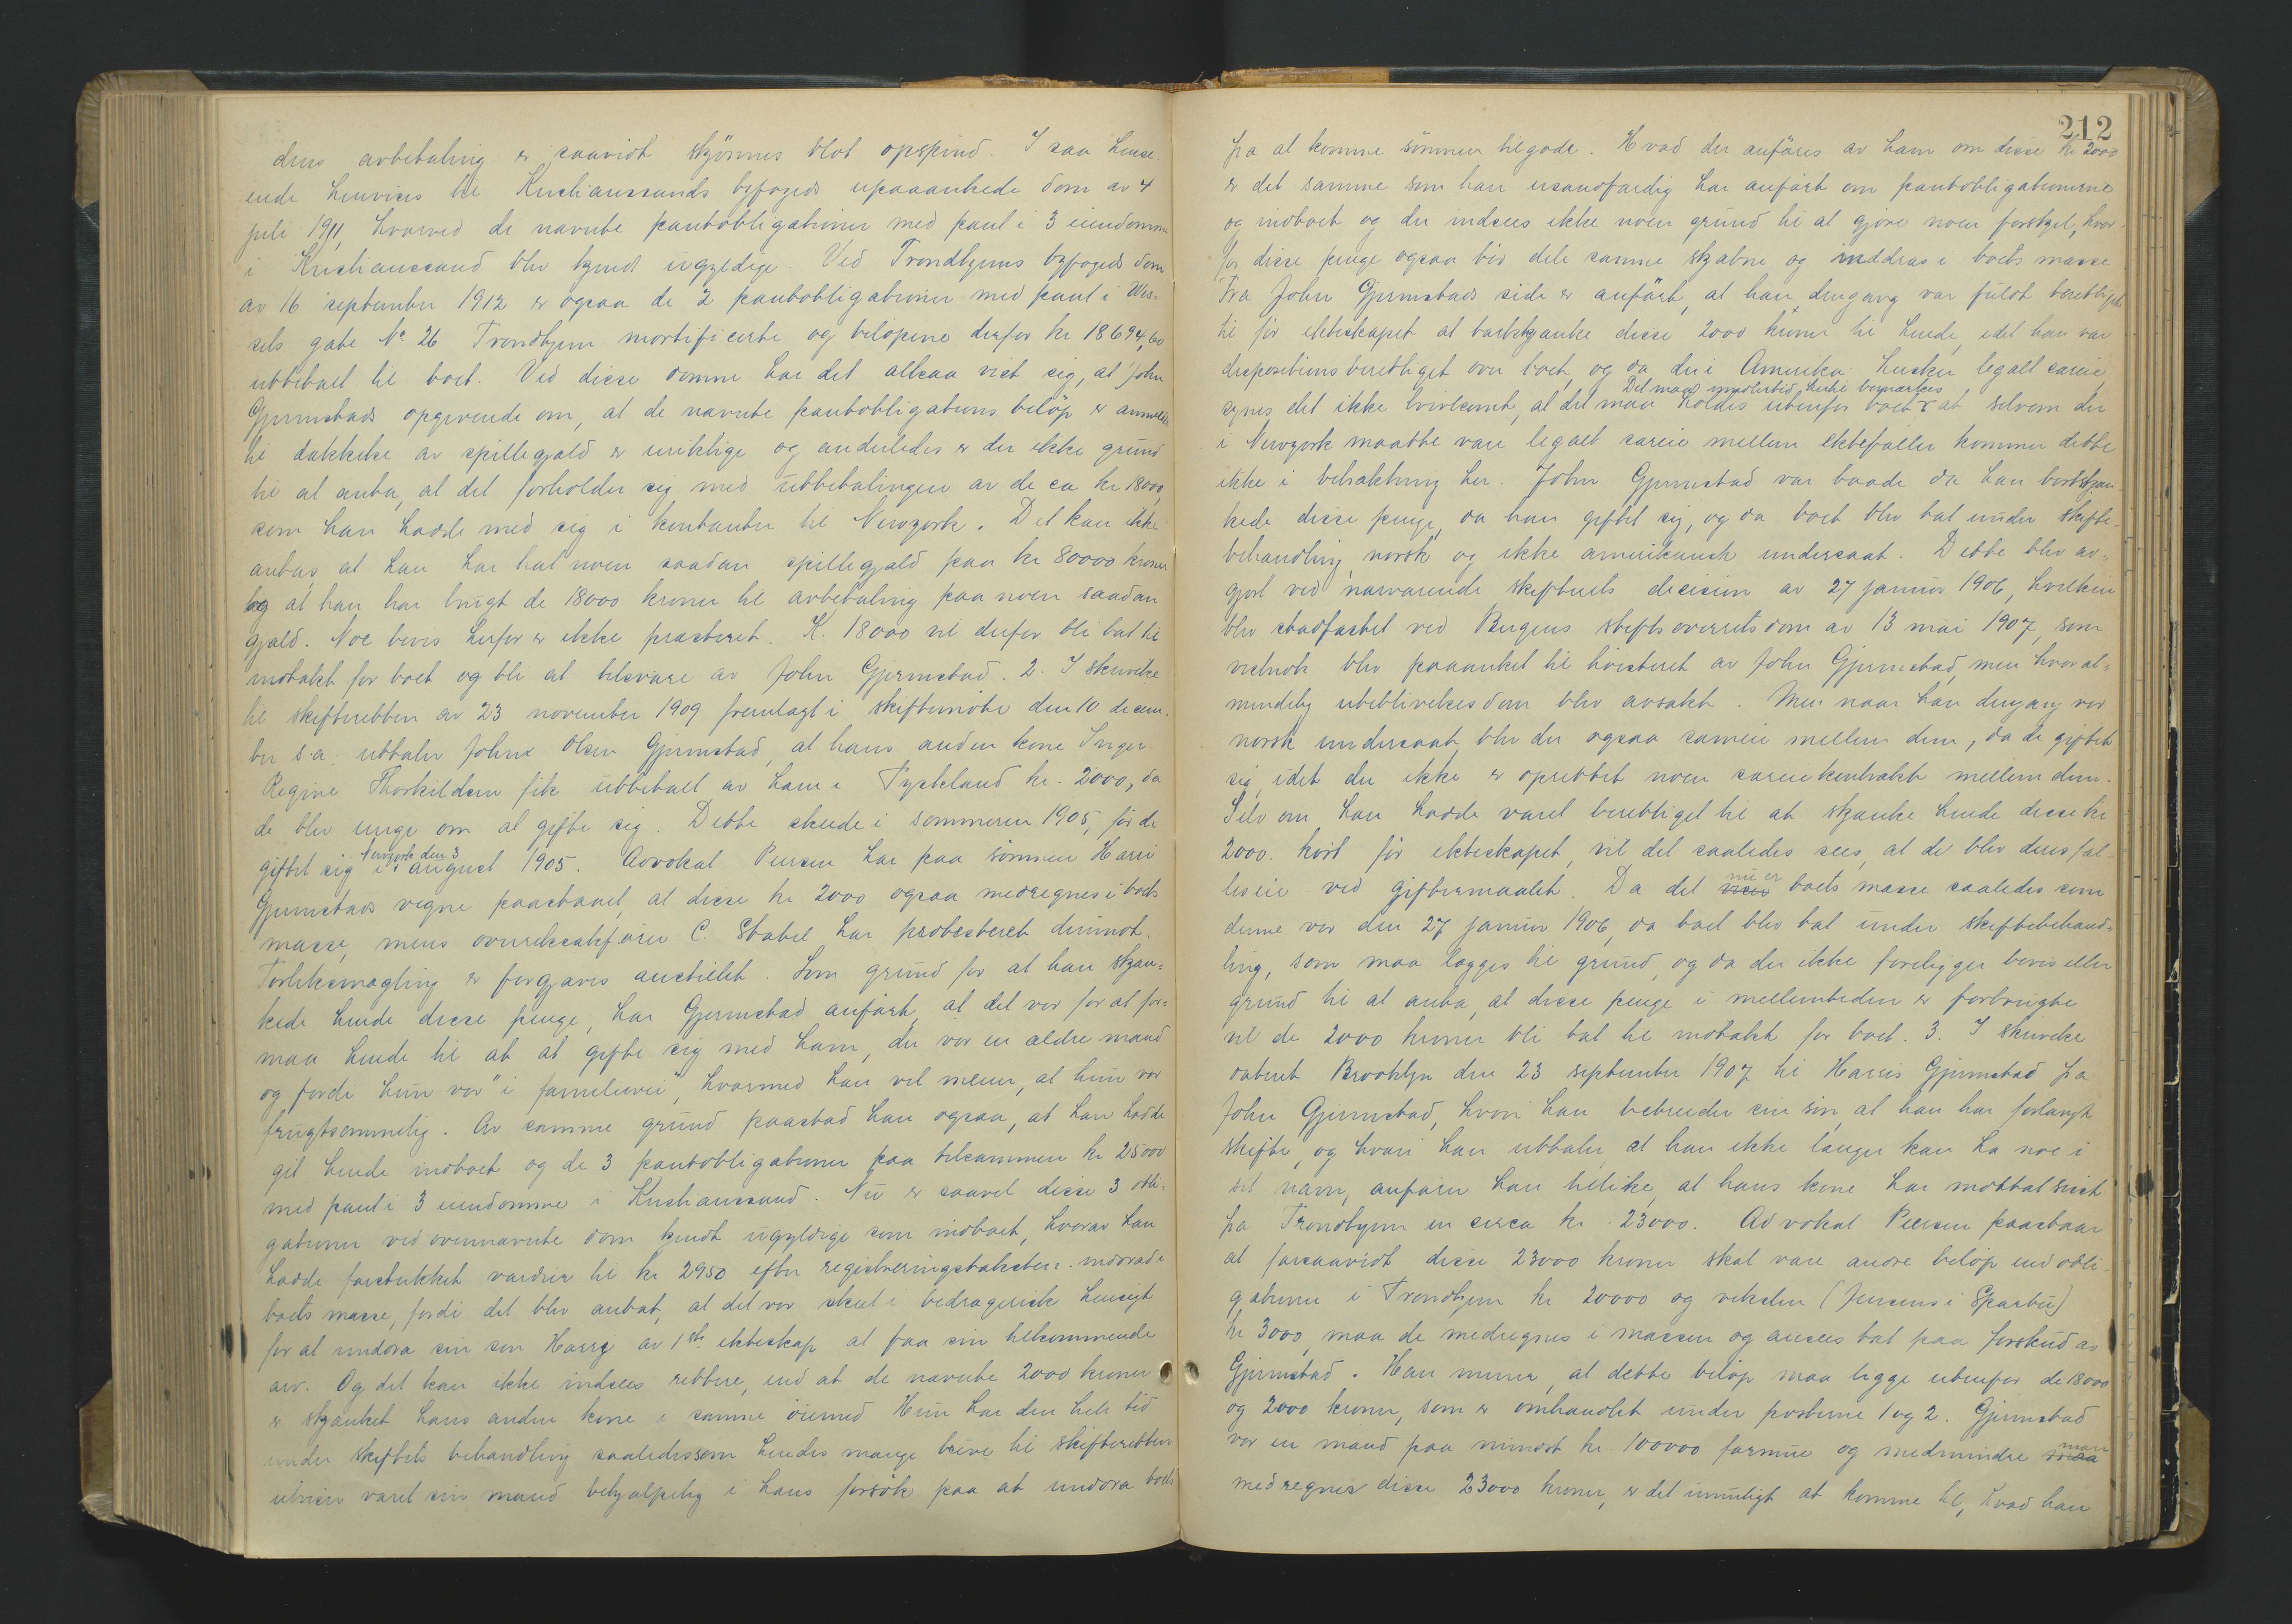 dens avbetaling er saavidt skjønnes blot opspind. I saa hense-
ende henvises til Kristianssunds byfogeds upaaankede dom av 4
juli 1911, hvorved de nævnte pantobligationer med pant i 3 eiendomme
i Kristianssund blev kjendt ugyldige. Ved Trondhjems byfogeds dom
av 16 september 1912 er ogsaa de 2 pantobligationer med pant i Wes-
sels gate No 26 Trondhjem mortificerte og beløpene derfor kr 18694,60
utbetalt til boet. Ved disse domme har det altsaa vist sig, at John
Gjermstads opgivende om, at de nævnte pantobligations beløp er anvendt
til dækkelse av spillegjæld er uriktige og anderledes er der ikke grund
til at anta, at det forholder sig med utbetalingen av de ca kr 18000
som han hadde med sig i kontanter til Newyork. Det kan ikke
antas, at han har hat noen saadan spillegjæld paa kr 80000 kroner
og at han har brugt de 18000 kroner til avbetaling paa noen saadan
gjæld. Noe bevis herfor er ikke præsteret. K. 18000 vil derfor bli tat til
indtækt for boet og bli at tilsvare av John Gjermstad. 2. I skrivelse
til skifteretten av 23 november 1909 fremlagt i skiftemøte den 10 decem-
ber s.a. uttaler John Olsen Gjermstad, at hans anden kone Inger
Regine Thorkildsen fik utbetalt av ham i Tyskland kr. 2000, da
de blev enige om at gifte sig. Dette skede i sommeren 1905, før de
giftet sig i Newyork den 3 august 1905. Advokat Peersen har paa sønnen Harri
Gjermstads vegne paastaaet, at disse kr 2000 ogsaa medregnes i boets
masse, mens overretssakfører C. Stabel har protesteret derimot.
Forliksmægling er forgjæves anstillet. Som grund for at han skjæn-
kede hende disse penge, har Gjermstad anført, at det var for at for-
maa hende til at at gifte sig med ham, der var en ældre mand
og fordi hun var "i familievei", hvormed han vel mener, at hun var
frugtsommelig. Av samme grund paastod han ogsaa, at han hadde
git hende indboet og de 3 pantobligationer paa tilsammen kr 25000
med pant i 3 eiendomme i Kristianssund. Nu er saavel disse 3 obli-
gationer ved ovennævnte dom kjendt ugyldige som indboet, hvorav han
hadde forstukket værdier til kr 2950 efter registreringstaksten. inddrad i
boets masse, fordi det blev antat, at det var skeet i bedragerisk hensigt
for at unddra sin søn Harry av 1ste ekteskap at faa sin tilkommende
arv. Og det kan ikke indsees rettere, end at de nævnte 2000 kroner
er skjænket hans anden kone i samme øiemed. Hun har den hele tid
under skiftets behandling saaledessom hendes mange breve til skifteretten
utviser været sin mand behjælpelig i hans forsøk paa at unddra boets
212
fra at komme sønnen tilgode. Hvad der anføres av ham om disse kr 2000
er det samme som han usandfærdig har anført om pantobligationerne
og indboet og der indsees ikke noen grund til at gjøre noen forskjel, hvor-
for disse penge ogsaa bør dele samme skjæbne og inddras i boets masse
Fra John Gjermstads side er anført, at han dengang var fuldt berettiget
til før ekteskapet at bortskjænke disse 2000 kroner til hende, idet han var
dispositionsberettiget over boet, og da der i Amerika hersker legalt særeie,
Det maa imidlertid hertil bemærkes
synes det ikke tvilsomt, at det maa holdes utenfor boet x at selvom der
i Newyork maatte være legalt særeie mellem ektefæller kommer dette
ikke i betraktning her. John Gjermstad var baade da han bortskjæn-
kede disse penge, da han giftet sig, og da boet blev tat under skifte-
behandling, norsk og ikke amerikansk undersaat. Dette blev av-
gjort ved nærværende skifterets decision av 27 januar 1906, hvilken
blev stadfæstet ved Bergens stiftsoverrets dom av 13 mai 1907, som
vistnok blev paaanket til høiesteret av John Gjermstad, men hvor al-
mindelig uteblivelsesdom blev avsakt. Men naar han dengang var
norsk undersaat, blev der ogsaa særeie mellem dem, da de giftet
sig, idet der ikke er oprettet noen særeiekontrakt mellem dem.
Selv om han hadde været berettiget til at skjænke hende disse kr
2000. kort før ekteskapet, vil det saaledes sees, at de blev deres fæl-
leseie ved giftermaalet. Da det nu er boets masse saaledes som
denne var den 27 januar 1906, da boet blev tat under skiftebehand-
ling, som maa lægges til grund, og da der ikke foreligger bevis eller
grund til at anta, at disse penge i mellemtiden er forbrugte
vil de 2000 kroner bli tat til indtækt for boet. 3. I skrivelse
dateret Brooklyn den 23 september 1907 til Harris Gjermstad fra
John Gjermstad, hvori han bebreider sin søn, at han har forlangt
skifte, og hvori han uttaler at han ikke længer kan ha noe i
sit navn, anfører han tillike, at hans kone har mottat sidst
fra Trondhjem en cirka kr. 23000. Advokat Peersen paastaar
at forsaavidt disse 23000 kroner skal være andre beløp end obli-
gationer i Trondhjem kr 20000 og vekslen (Jensens i Sparbu)
kr 3000, maa de medregnes i massen og ansees tat paa forskud av
Gjermstad. Han mener, at dette beløp maa ligge utenfor de 18000
og 2000 kroner, som er omhandlet under posterne 1 og 2. Gjermstad
var en mand paa mindst kr. 100000 formue og medmindre man
medregner disse 23000 kroner, er det umuligt at komme til, hvad han